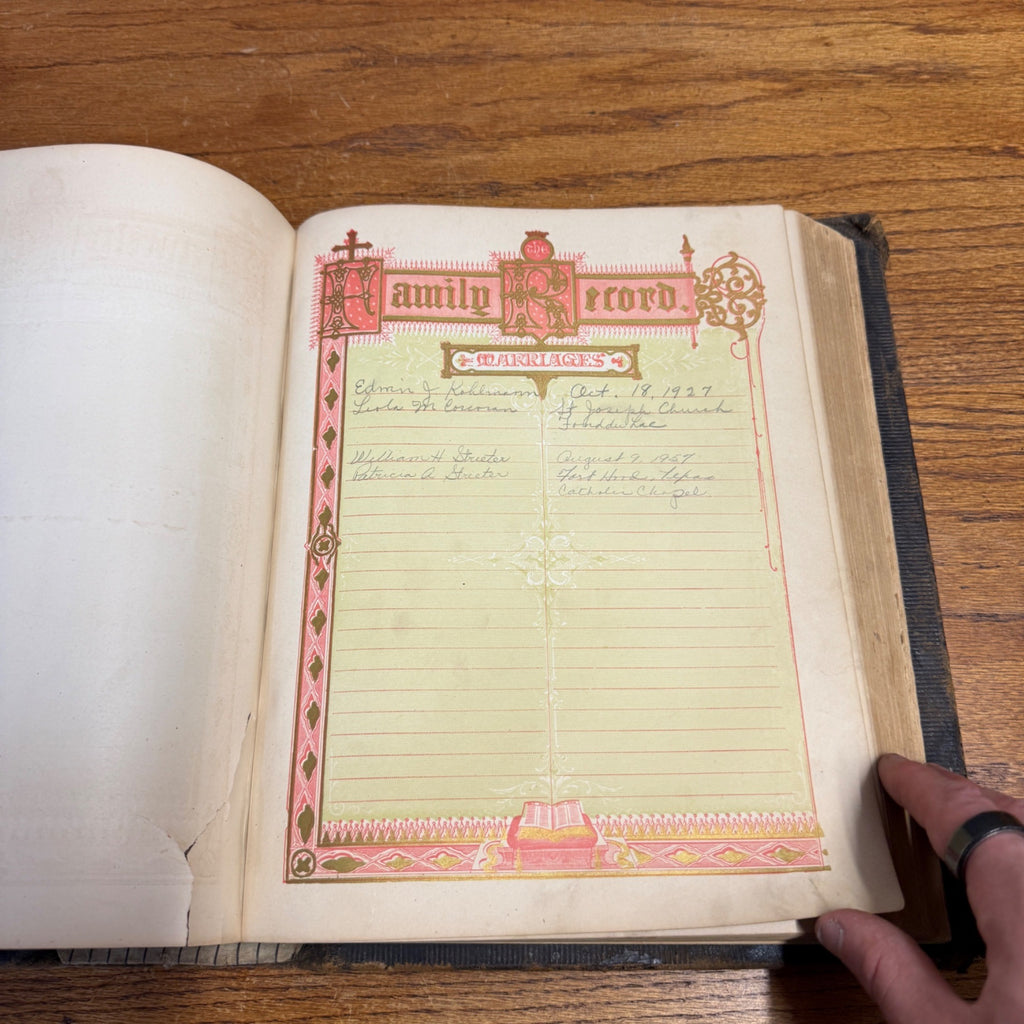 the
Family Record.
MARRIAGES
Edwin J. Kohlmann Oct. 18, 1927
M Corcoran St Joseph Church
Fonddu Lac
William H Streeter August 9, 1957
Patricia A. Streeter Fort Hood, Texas
Catholic Chapel.